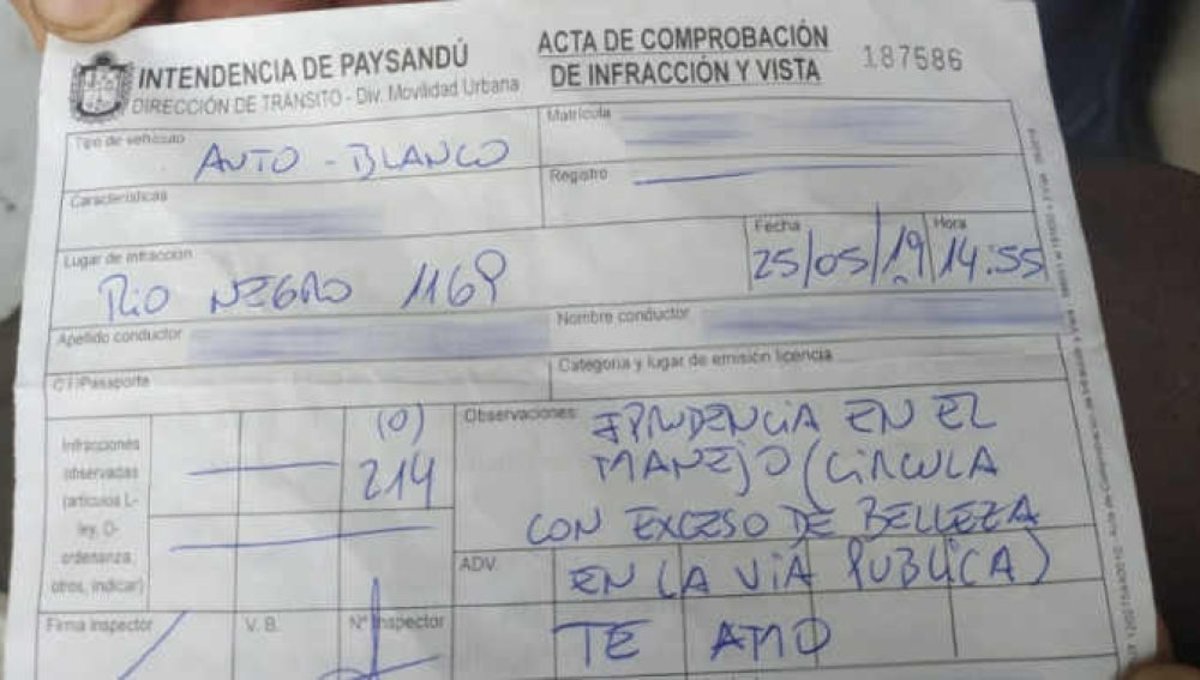 INTENDENCIA DE PAYSANDÚ
DIRECCIÓN DE TRÁNSITO - Div. Movilidad Urbana
ACTA DE COMPROBACIÓN
DE INFRACCIÓN Y VISTA
187586
Tipo de vehículo
AUTO - BLANCO
Matrícula
Características
Registro
Lugar de infracción
RIO NEGRO 1169
Fecha
25/05/19
Hora
14:55
Apellido conductor
Nombre conductor
C.I/Pasaporte
Categoría y lugar de emisión licencia
Infracciones
observadas
(artículos L-
ley, O-
ordenanza,
otros, indicar)
(O)
214
Observaciones:
IPRUDENCIA EN EL
MANEJO (CIRCULA
CON EXCESO DE BELLEZA
EN LA VIA PUBLICA)
TE AMO
ADV.
Firma Inspector
V. B.
Nº Inspector